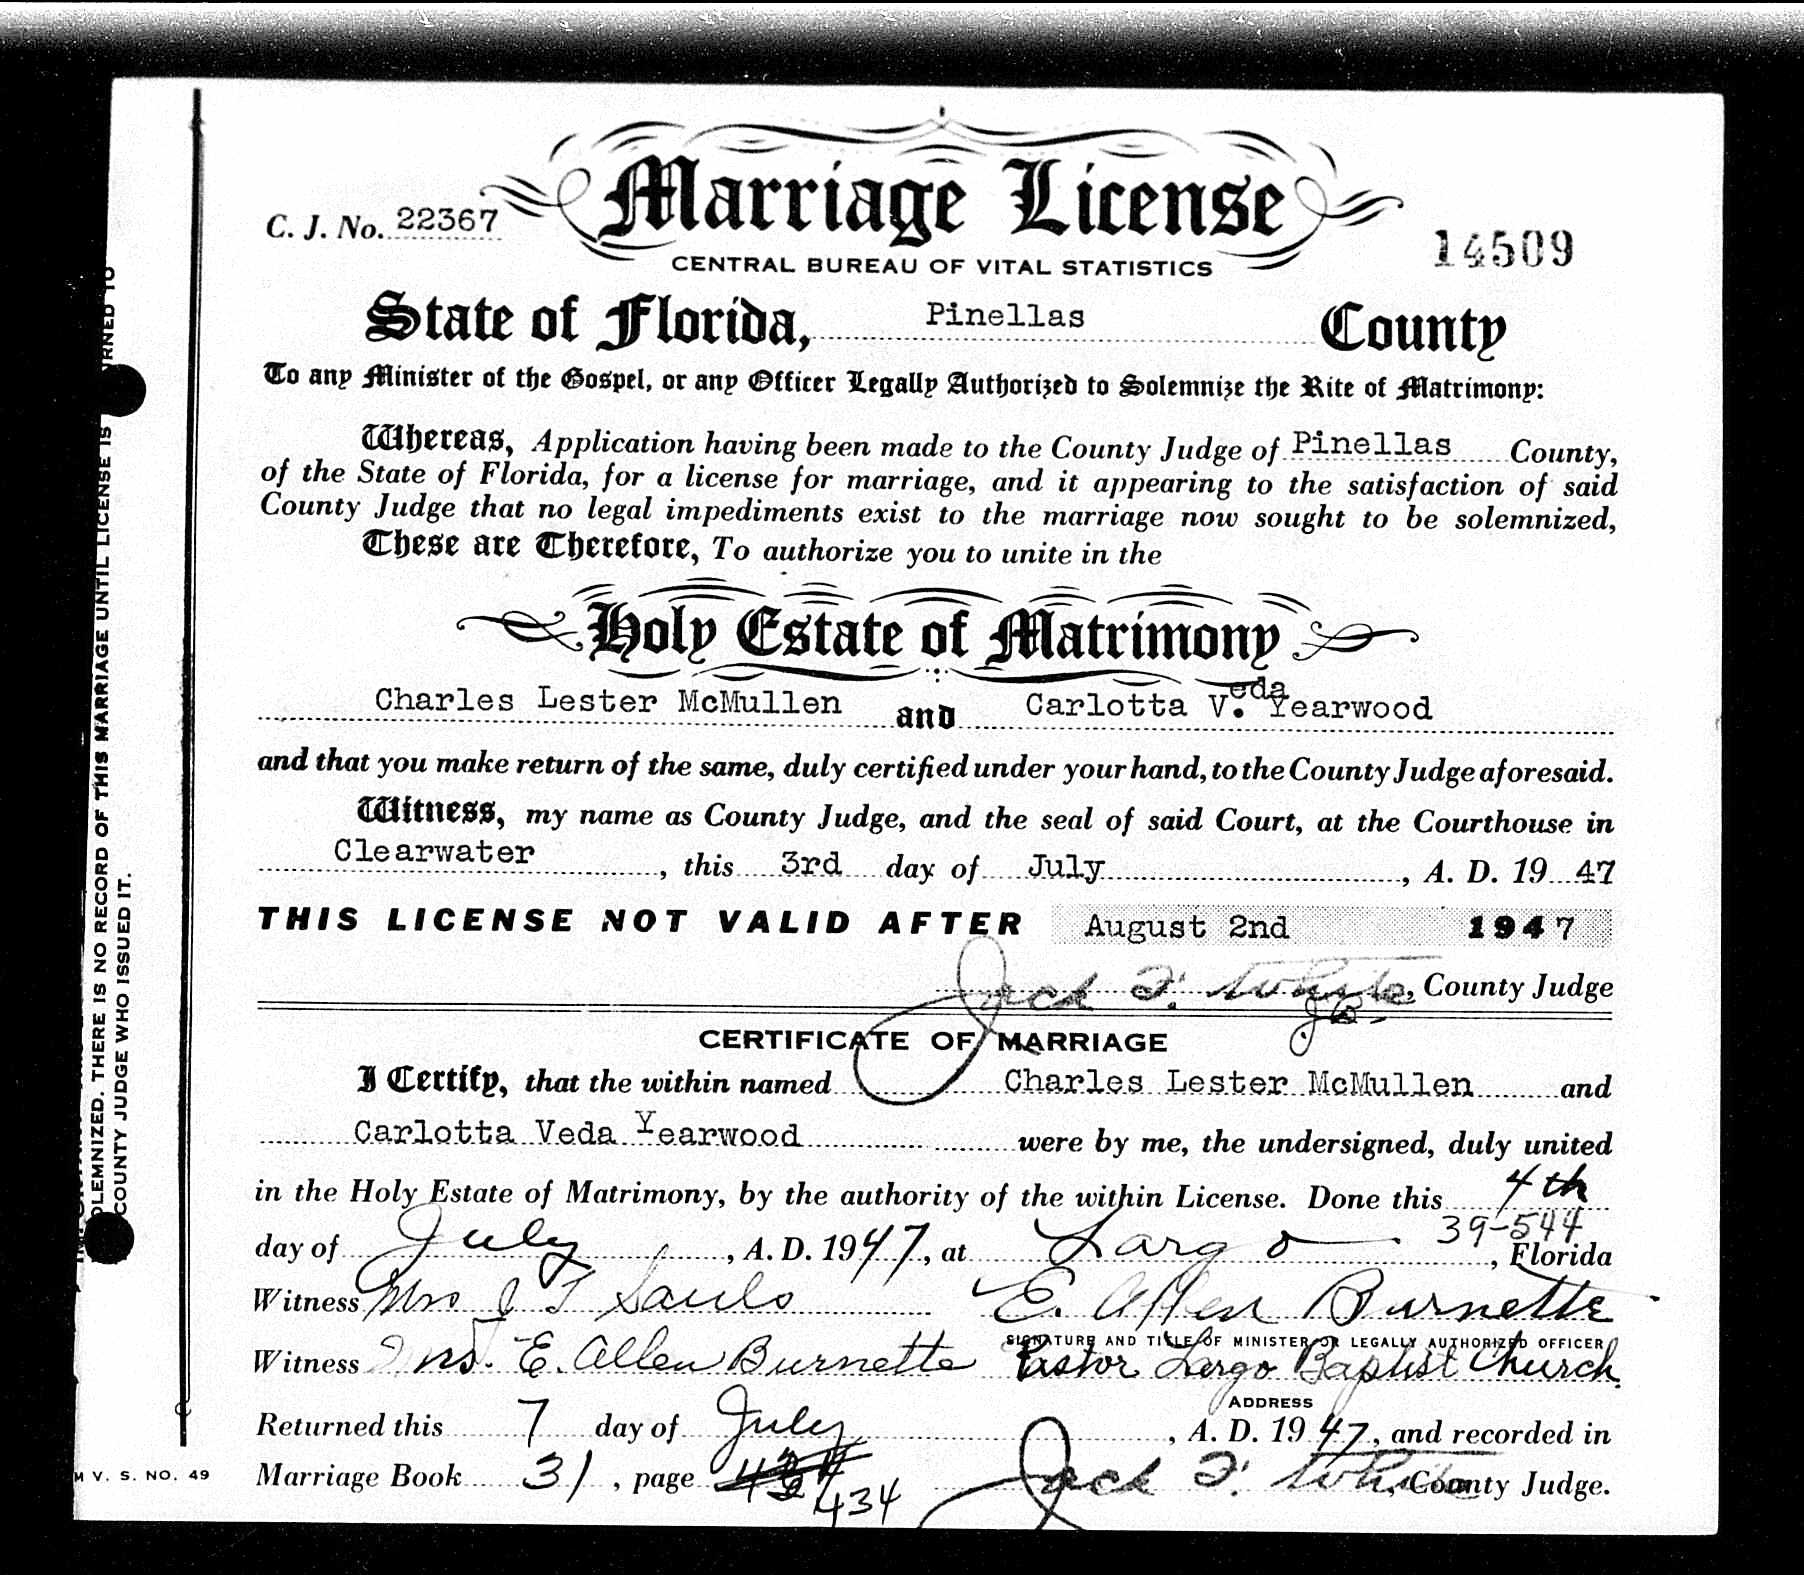 Marriage License
C. J. No. 22367
14509
CENTRAL BUREAU OF VITAL STATISTICS
State of Florida, Pinellas County
To any Minister of the Gospel, or any Officer Legally Authorized to Solemnize the Rite of Matrimony:
Whereas, Application having been made to the County Judge of Pinellas County,
of the State of Florida, for a license for marriage, and it appearing to the satisfaction of said
County Judge that no legal impediments exist to the marriage now sought to be solemnized,
These are Therefore, To authorize you to unite in the
Holy Estate of Matrimony
Charles Lester McMullen and Carlotta V.eda Yearwood
and that you make return of the same, duly certified under your hand, to the County Judge aforesaid.
Witness, my name as County Judge, and the seal of said Court, at the Courthouse in
Clearwater, this 3rd day of July, A. D. 19 47
THIS LICENSE NOT VALID AFTER August 2nd 1947
Jack F. White, County Judge
CERTIFICATE OF MARRIAGE
I Certify, that the within named Charles Lester McMullen and
Carlotta Veda Yearwood were by me, the undersigned, duly united
in the Holy Estate of Matrimony, by the authority of the within License. Done this 4th
39-544
day of July, A. D. 1947, at Largo, Florida
Witness Mrs J T Sauls E. Allen Burnette
SIGNATURE AND TITLE OF MINISTER OR LEGALLY AUTHORIZED OFFICER
Witness Mrs. E. Allen Burnette Pastor Largo Baptist Church
ADDRESS
Returned this 7 day of July, A. D. 19 47, and recorded in
Marriage Book 31, page 434 Jack F. White, County Judge.
V. S. NO. 49
OLEMNIZED. THERE IS NO RECORD OF THIS MARRIAGE UNTIL LICENSE IS RNED TO
COUNTY JUDGE WHO ISSUED IT.